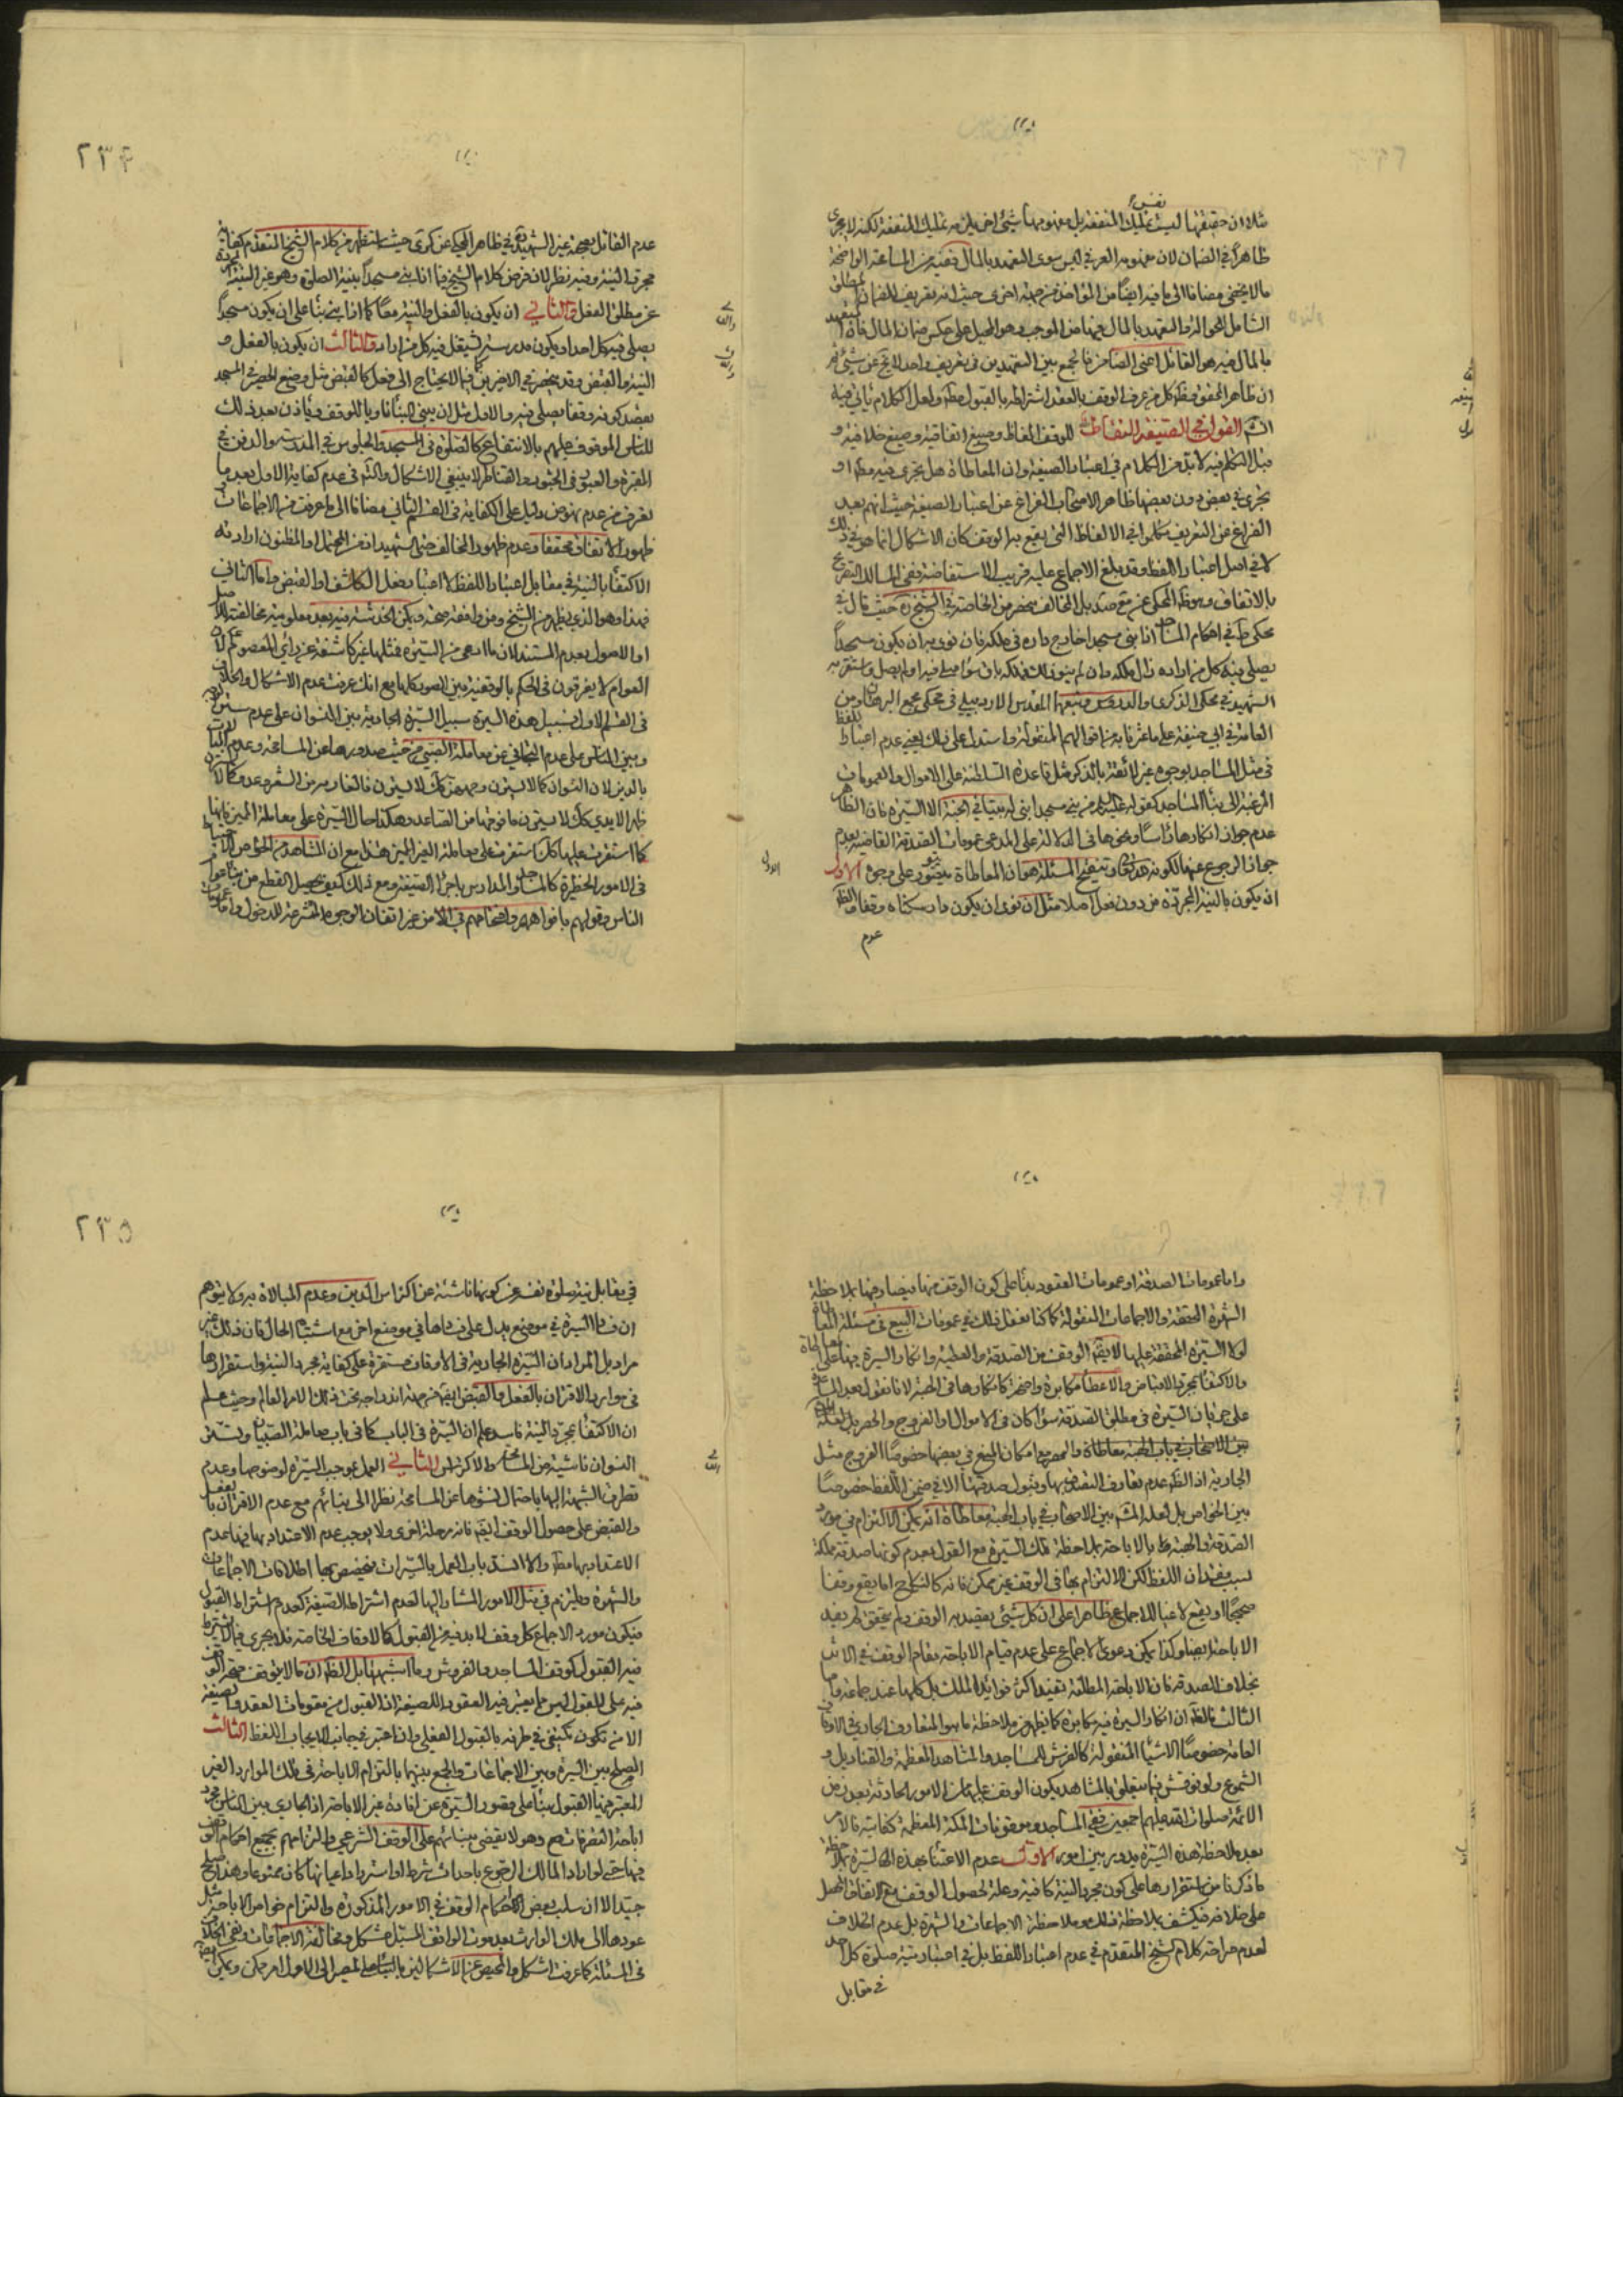 مثلا ان حقيقتها ليست تمليك المنفعة بل مفهومها شيئ اخر يلزمه تمليك المنفعة لكنه لا يجرى
ظاهراً في الضمان لان مفهومه العرفي ليس سوى التعهد بالمال ففيه من المسامحة الواضحة
ما لا يخفى مضافا الى ما فيه ايضاً من المؤاخذة من جهة اخرى حيث انه تعريف للضمان
الشامل للحوالة والتعهد بالمال فيهما من الموجب وهو المحيل على عكس ضمان المال فان المتعهد
بالمال فيه هو القابل اعنى الضامن فالجمع بين التعهدين في تعريف واحد لا يخ عن شيئ ثم
ان ظاهر المحقق وظ كل من عرف الوقف بالعقد اشتراطه بالقبول مط ولعل الكلام يأتي فيه
القول في الصيغة للوقف الفاظ وصيغ اتفاقية وصيغ خلافية و
قبل التكلم فيه لا بد من الكلام في اعتبار الصيغة وان المعاطاة هل يجرى فيه مط او
يجرى في بعض دون بعض ظاهر الاصحاب الفراغ عن اعتبار الصيغة حيث انهم بعد
الفراغ عن التعريف تكلموا في الالفاظ التى يقع بها الوقف كان الاشكال انما هو في ذلك
لا في اصل اعتبار اللفظ وقد بلغ الاجماع عليه قريب الاستفاضة ففي المسالك التصريح
بالاتفاق وهو ظ المحكى عن بل المخالف منحصر من الخاصة في الشيخ ره حيث قال في
محكى ط في احكام المساجد اذا بنى مسجدا خارج داره في ملكه فان نوى به ان يكون مسجداً
يصلى فيه كل من اراده زال ملكه وان لم ينو ذلك فملكه باق سواء صلى فيه او لم يصل واستقر به
الشهيد في محكى الذكرى والدروس وتبعهما المقدس الاردبيلي في محكى مجمع البرهان ومن
العامة في ابي حنيفة على ما عثرنا به من اقوالهم المنقولة واستدل على ذلك يعنى عدم اعتبار اللفظ
في مثل المساجد بوجوه غير لائقة بالذكر مثل قاعدة السلطنة على الاموال والعمومات
المرغبة الى بناء المساجد كقوله عليه السلام من بنى مسجدا بنى له بيتا في الجنة الا السيرة فان الظاهر
عدم جواز انكارها رأسا ونحوها في الدلالة على المدعى عمومات الصدقة القاضية بعدم
جواز الرجوع عنها لكونه صدقة وتنقيح المسئلة هو ان المعاطاة يتصور على وجوه الاول
ان يكون بالنية المجردة من دون فعل اصلا مثل ان نوى ان يكون دار سكناه وقفا والظ
عدم
٢٣۴
عدم القائل بصحة غير الشهيد ره في ظاهر المحكى عن كرى حيث استظهر من كلام الشيخ المتقدم كفاية
مجرد النية وفيه نظر لان فرض كلام الشيخ فيما اذا بنى مسجداً بنية الصلوة وهو غير النية المجردة
عن مطلق الفعل والثاني ان يكون بالفعل والنية معاً كما اذا بنى بناء على ان يكون مسجداً
يصلى فيه كل احد او يكون مدرسة يشتغل فيه كل من اراد والثالث ان يكون بالفعل و
النية والقبض وقد ينحصر في الاخيرين فيما لا يحتاج الى فعل كالقبض مثل وضع الحصير في المسجد
بقصد كونه وقفا يصلى فيه والاول مثل ان يبنى البناء ناويا للوقف ويأذن بعد ذلك
للناس الموقوف عليهم بالانتفاع كالصلوة في المسجد والجلوس في المدرسة والدفن في
المقبرة والعبور في الجسور والقناطر لا ينبغي الاشكال والشبهة في عدم كفاية الاول بعد ما
تعرف من عدم نهوض دليل على الكفاية في القسم الثاني مضافا الى ما عرفت من الاجماعات
ظهور الاتفاق محققا وعدم ظهور المخالف حتى الشهيد اذ من المحتمل او المظنون ارادته
الاكتفاء بالنية في مقابل اعتبار اللفظ لا اعتبار فعل الكاشف او القبض واما الثاني
فهذا وهو الذي يظهر من الشيخ ومن وافقه صحته ويمكن الخدشة فيه بعد معلومية مخالفته للاصل
او الاصول بعدم المستند لان ما ادعى من السيرة فمثلها غير كاشفة عن رأي المعصوم ع لان
العوام لا يفرقون في الحكم بالوقفية بين الصور كلها مع انك عرفت عدم الاشكال والخلاف
في القسم الاول فسبيل هذه السيرة سبيل السيرة الجارية بين النسوان على عدم ستر
وبين الناس على عدم التجافي عن معاملة الصبي من حيث صدورها عن المسامحة وعدم المبالاة
بالدين لان النسوان كما لا يسترن وجههن كك لا يسترن ما لا يعد من الشعر وعدم كما لا
ظهر الايدي كك لا يسترن ما فوقها من الساعد وهكذا حال السيرة على معاملة المميز فانها
كما استقرت عليها كك استقرت على معاملة الغير المميز هذا مع ان المشاهد من الخواص الاحتياط
في الامور الخطيرة كالمساجد والمدارس باجراء الصيغة ومع ذلك كيف يحصل القطع من بناء عوام
الناس وقولهم بافواههم واقتحامهم في الامر من غير اتقان الوجوه المشرعة للدخول واما عمومات
واما عمومات الصدقة او عمومات العقود بناء على كون الوقف منها فيصادمها بملاحظة
الشهرة المحققة والاجماعات المنقولة كما كنا نفعل ذلك في عمومات البيع في مسئلة المعاطاة
لولا السيرة المحققة عليها لا يقم الوقف من الصدقة والعطية وانكار السيرة فيها على
والاكتفاء بمجرد الاقباض والاعطاء مكابرة واضحة كانكارها في الهبة لانا نقول بعد المساعدة
على جريان السيرة في مطلق الصدقة سواء كان في الاموال والفروج والحصر بل لعله
بين الاصحاب في باب الهبة معاطاة والحصر مع امكان المنع في بعضها خصوصاً الفروج مثل
الجارية اذ الظ عدم تعارف التصدق بها وقبول صدقتها الا في ضمن اللفظ خصوصاً
بين الخواص بل لعله المش بين الاصحاب في باب الهبة معاطاة انه يمكن الالتزام في مورد
الصدقة والهبة بالاباحة بملاحظة تلك السيرة مع القول بعدم كونها صدقة مملكة
بسبب فقدان اللفظ لكن الالتزام بها في الوقف غير ممكن فانه كالنكاح اما يقع وقفا
صحيحاً او يقع لاغيا للاجماع ظاهرا على ان كل شيئ يقصد به الوقف ولم يتحقق لم يفد
الاباحة ايضا وكذا يمكن دعوى الاجماع على عدم قيام الاباحة مقام الوقف في الاثر
بخلاف الصدقة فان الاباحة المطلقة تفيد اكثر فوائد الملك بل كلها عند جماعة واما
الثالث فالظ ان انكار السيرة فيه مكابرة كما يظهر من ملاحظة ما هو المتعارف الجاري في الاوقاف
العامة خصوصاً الاشياء المنقولة كالفرش للمساجد والمشاهد المعظمة والقناديل و
الشموع ولو نوقش فيما يتعلق بالمشاهد يكون الوقف عليها من الامور الحادثة بعد زمن
الائمة صلوات الله عليهم اجمعين ففي المساجد وموقوفات المكة المعظمة كفاية فالامر
بعد ملاحظة هذه السيرة يدور بين امور الاول عدم الاعتناء بهذه السيرة بملاحظة
ما ذكرنا من استقرارها على كون مجرد النية كافية وعلة لحصول الوقف مع الاتفاق المحصل
على خلافه فيكشف بملاحظة ذلك وملاحظة الاجماعات والشهرة بل عدم الخلاف
لعدم صراحة كلام الشيخ المتقدم في عدم اعتبار اللفظ بل في اعتبار نية صلوة كل احد
في مقابل
٢٣۵
في مقابل نية صلوة نفسه عن كونها ناشئة عن اكتراث الدين وعدم المبالاة به ولا يتوهم
ان فساد السيرة في موضع يدل على فسادها في موضع اخر مع اشتباه الحال فان ذلك غير
مراد بل المراد ان السيرة الجارية في الاوقاف مستقرة على كفاية مجرد النية واستقرارها
في موارد الاقتران بالفعل والقبض ايضا من جهة اندراجه تحت ذلك الامر العام وحيث علم
ان الاكتفاء بمجرد النية فاسد علم ان السيرة في الباب كما في باب معاملة الصبيان وتستر
النسوان ناشية من المسامحة والاكتراث الثاني العمل بموجب السيرة لوضوحها وعدم
تطرق الشبهة اليها باحتمال نشوها عن المسامحة نظرا الى بنائهم مع عدم الاقتران بالفعل
والقبض على حصول الوقف ايضا فانه مرحلة اخرى ولا يوجب عدم الاعتداد بها فيها عدم
الاعتداد بها مط والا انسد باب العمل بالسيرات فيخصص بها اطلاقات الاجماعات
والشهرة ويلتزم في مثل الامور المشار اليها بعدم اشتراط الصيغة كعدم اشتراط القبول
فيكون مورد الاجماع كل وقف لا بد فيه من القبول كالاوقاف الخاصة فلا يجرى فيما لا يشترط
فيه القبول كوقف المساجد والفروش وما اشبهها بل الظ ان ما لا يتوقف صحة الوقف
فيه على القبول ليس مما يعتبر فيه العقود والصيغة اذ القبول من مقومات العقد والصيغة
الا ان تكون يكتفى في طرفه بالقبول الفعلي وان اعتبر في جانب الايجاب اللفظ الثالث
الصلح بين السيرة وبين الاجماعات والجمع بينهما بالتزام الاباحة في تلك الموارد الغير
المعتبر فيها القبول بناء على قصور السيرة عن افادة غير الاباحة اذ الجاري بين الناس مجرد
اباحة التصرفات وهو لا يقضى ببنائهم على الوقف الشرعي والتزامهم بجميع احكام الوقف
فيها حتى لو اراد المالك الرجوع باحداث شرط او استرداد اعيانها كان ممنوعا وهذا صلح
جيد الا ان سلب بعض احكام الوقف في الامور المذكورة والتزام خواص الاباحة مثل
عودها الى ملك الوارث بعد موت الواقف المسبل مشكل ومخالفة الاجماعات ونفى الخلاف
في المسئلة كما عرفت اشكل والتخلص عن الاشكالين بالبناء على المصير الى الاول امر ممكن ويمكن